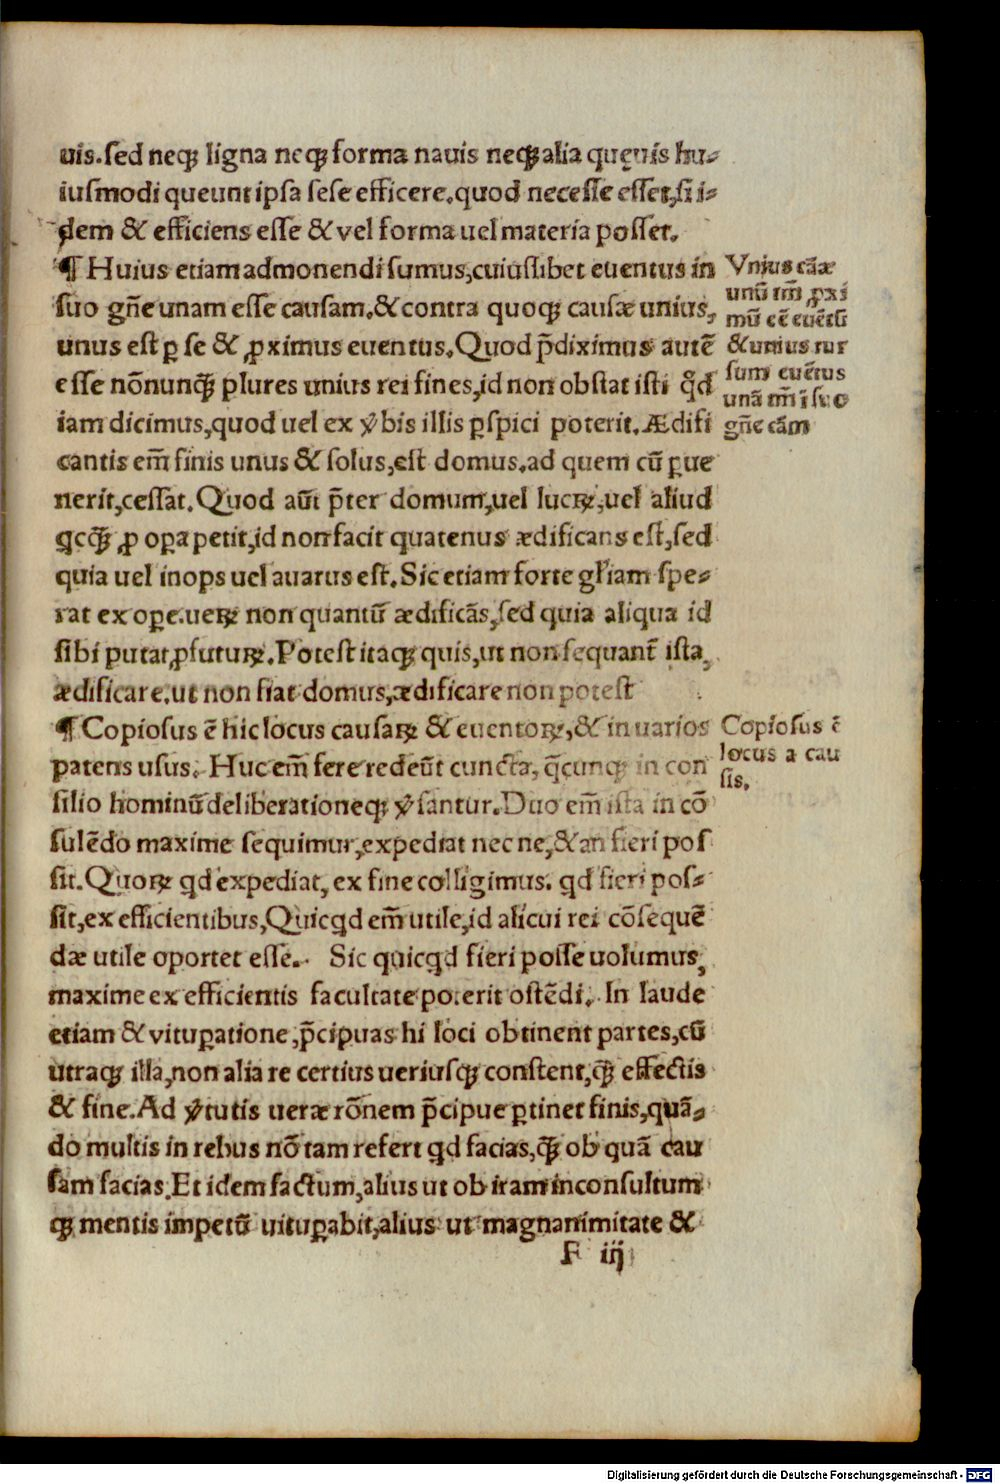 uis. sed neqꝫ ligna neqꝫ forma nauis neqꝫ alia quęuis hu⸗
iusmodi queunt ipsa sese efficere. quod necesse esset, si i⸗
dem & efficiens esse & vel forma uel materia posset.
¶ Huius etiam admonendi sumus, cuiuslibet euentus in
suo gn̄e unam esse causam. & contra quoqꝫ causæ unius,
unus est ꝑ se & ꝓximus euentus. Quod p̄diximus autē
esse nōnunꝙ̄ plures unius rei fines, id non obstat isti qd̄
iam dicimus, quod uel ex ꝟbis illis ꝑspici poterit. Ædifi
cantis em̄ finis unus & solus, est domus. ad quem cū ꝑue
nerit, cessat. Quod aūt p̄ter domum, uel lucꝝ, uel aliud
ꝗcꝙ̄ ꝓ oꝑa petit, id non facit quatenus ædificans est, sed
quia uel inops uel auarus est. Sic etiam forte gl̄iam spe⸗
rat ex oꝑe. ueꝝ non quantū ædificās, sed quia aliqua id
sibi putat ꝓfutuꝝ. Potest itaqꝫ quis, ut non sequant̄ ista,
ædificare. ut non fiat domus, ædificare non potest
¶ Copiosus ē hic locus causaꝝ & euentoꝝ, & in uarios
patens usus. Huc em̄ fere redeūt cuncta, q̄cunqꝫ in con
silio hominū deliberationeqꝫ ꝟsantur. Duo em̄ ista in cō
sulēdo maxime sequimur, expediat nec ne, & an fieri pos
sit. Quoꝝ ꝗd expediat, ex fine colligimus. ꝗd fieri pos⸗
sit, ex efficientibus, Quicꝗd em̄ utile, id alicui rei cōsequē
dæ utile oportet esse. Sic quicꝗd fieri posse uolumus,
maxime ex efficientis facultate poterit ostēdi. In laude
etiam & vituꝑatione, p̄cipuas hi loci obtinent partes, cū
utraqꝫ illa, non alia re certius ueriusqꝫ constent, ꝙ̄ effectis
& fine. Ad ꝟtutis ueræ rōnem p̄cipue ꝑtinet finis, quā⸗
do multis in rebus nō tam refert ꝗd facias, ꝙ̄ ob quā cau
sam facias. Et idem factum, alius ut ob iram inconsultum
qꝫ mentis impetū uituꝑabit, alius ut magnanimitate &
F iij
Vnius cāæ
unū tm̄ ꝓxi
mū eē euētū
& unius rur
sum euētus
unā tm̄ ī suo
gn̄e cām
Copiosus ē
locus a cau
sis.
Digitalisierung gefördert durch die Deutsche Forschungsgemeinschaft - DFG